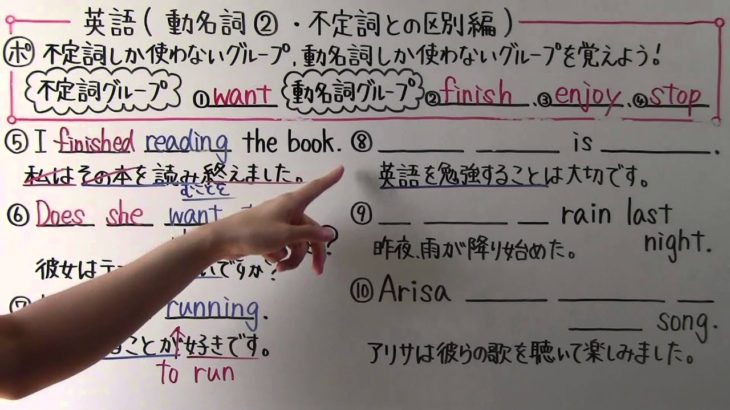 英語(動名詞②・不定詞との区別編)
㋭ 不定詞しか使わないグループ、動名詞しか使わないグループを覚えよう!
不定詞グループ ①want 動名詞グループ ②finish、③enjoy、④stop
⑤ I finished reading the book.
私はその本を読み終えました。
むことを
⑥ Does she want
?
彼女はテ
いですか?
running.
ことが好きです。
to run
⑧ is .
英語を勉強することは大切です。
⑨ rain last night.
昨夜、雨が降り始めた。
⑩ Arisa song.
アリサは彼らの歌を聴いて楽しみました。